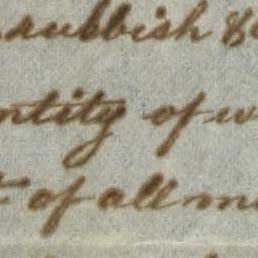 rubbish &
ntity of w
of all m